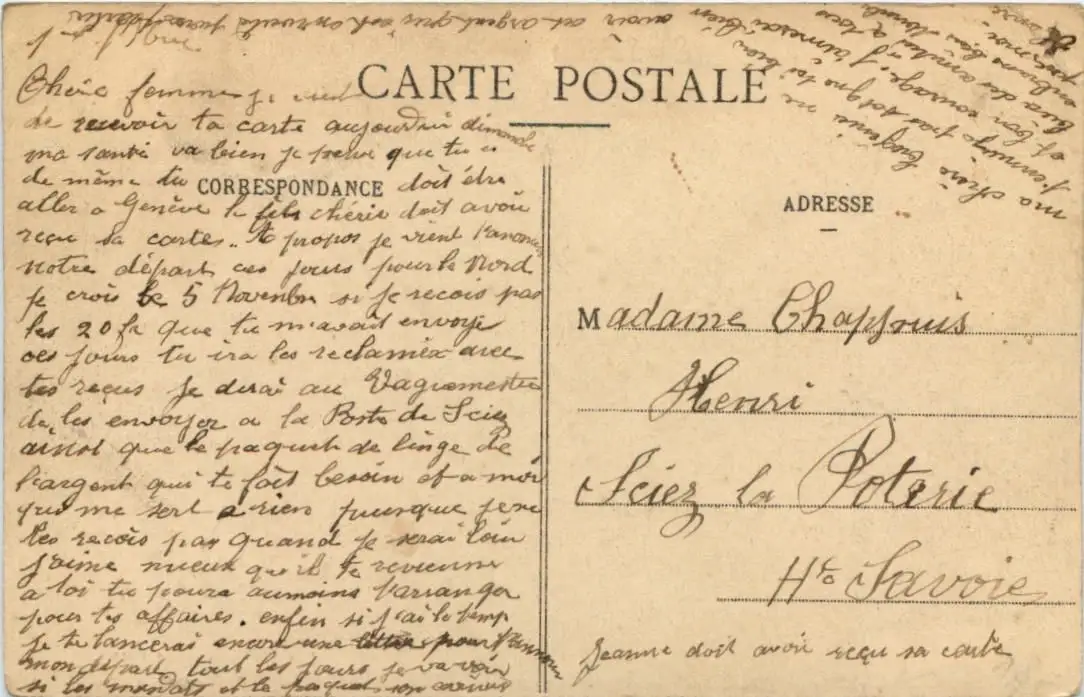 CARTE POSTALE
CORRESPONDANCE
ADRESSE
Chère femme je vient
de recevoir ta carte aujourdui dimanche
ma santé va bien je pense que tu es
de même tu doit être
aller a Genève le fils chérie doit avoir
reçu sa cartes.. A propos je vient t'anoncer
notre départ ces jours pour le Nord
je crois le 5 Novembre si je recois pas
les 20 fr que tu m'avait envoyé
ces jours tu ira les reclamer avec
tes reçus je dirai au Vaguemestre
de les envoyer a la Poste de Sciez
ainsi que le paquet de linge de
l'argent qui te fait besoin et a moi
que me sert a rien puisque je ne
les recois pas quand je serai loin
j'aime mieux qu'il te revienne
a toi tu poura aumoins t'arranger
pour tes affaires. enfin si j'ai le temp
je te lancerai encore une lettre pour t'annoncer
mon départ tout les jours je va voir
si les mandats et le paquet son arrivés
ma chère
t'ennuye pas soigne toi bien
et bon courage
Madame Chappuis
Henri
Sciez la Poterie
Hte Savoie
Jeanne doit avoir reçu sa carte